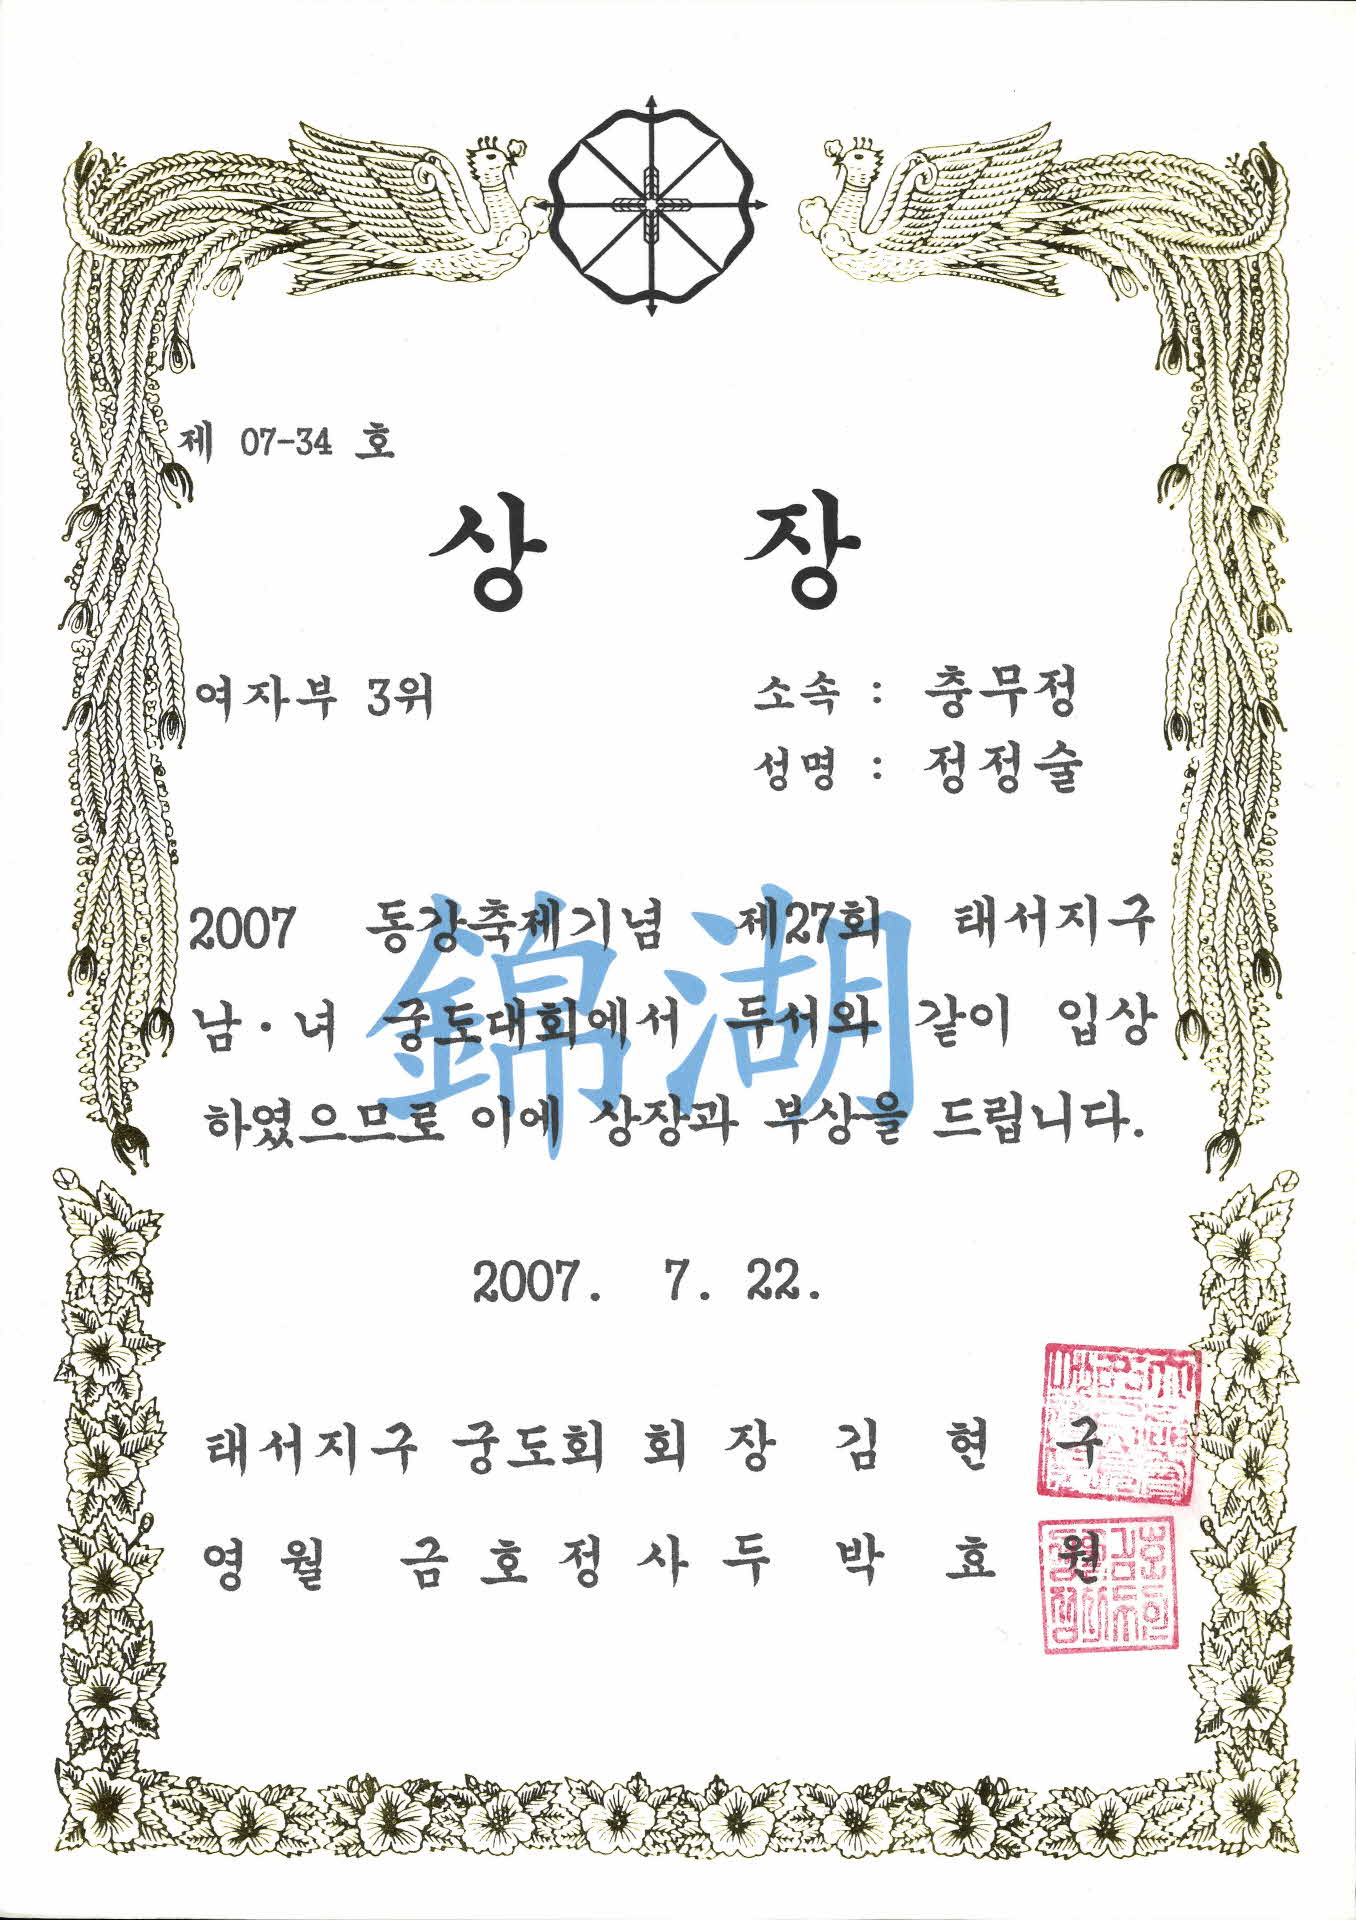 제 07-34 호
상 장
여자부 3위
소속 : 충무정
성명 : 정정술
錦湖
2007 동강축제기념 제27회 태서지구
남·녀 궁도대회에서 두서와 같이 입상
하였으므로 이에 상장과 부상을 드립니다.
2007. 7. 22.
태서지구 궁도회 회 장 김 현 구
영 월 금 호 정 사 두 박 효 원